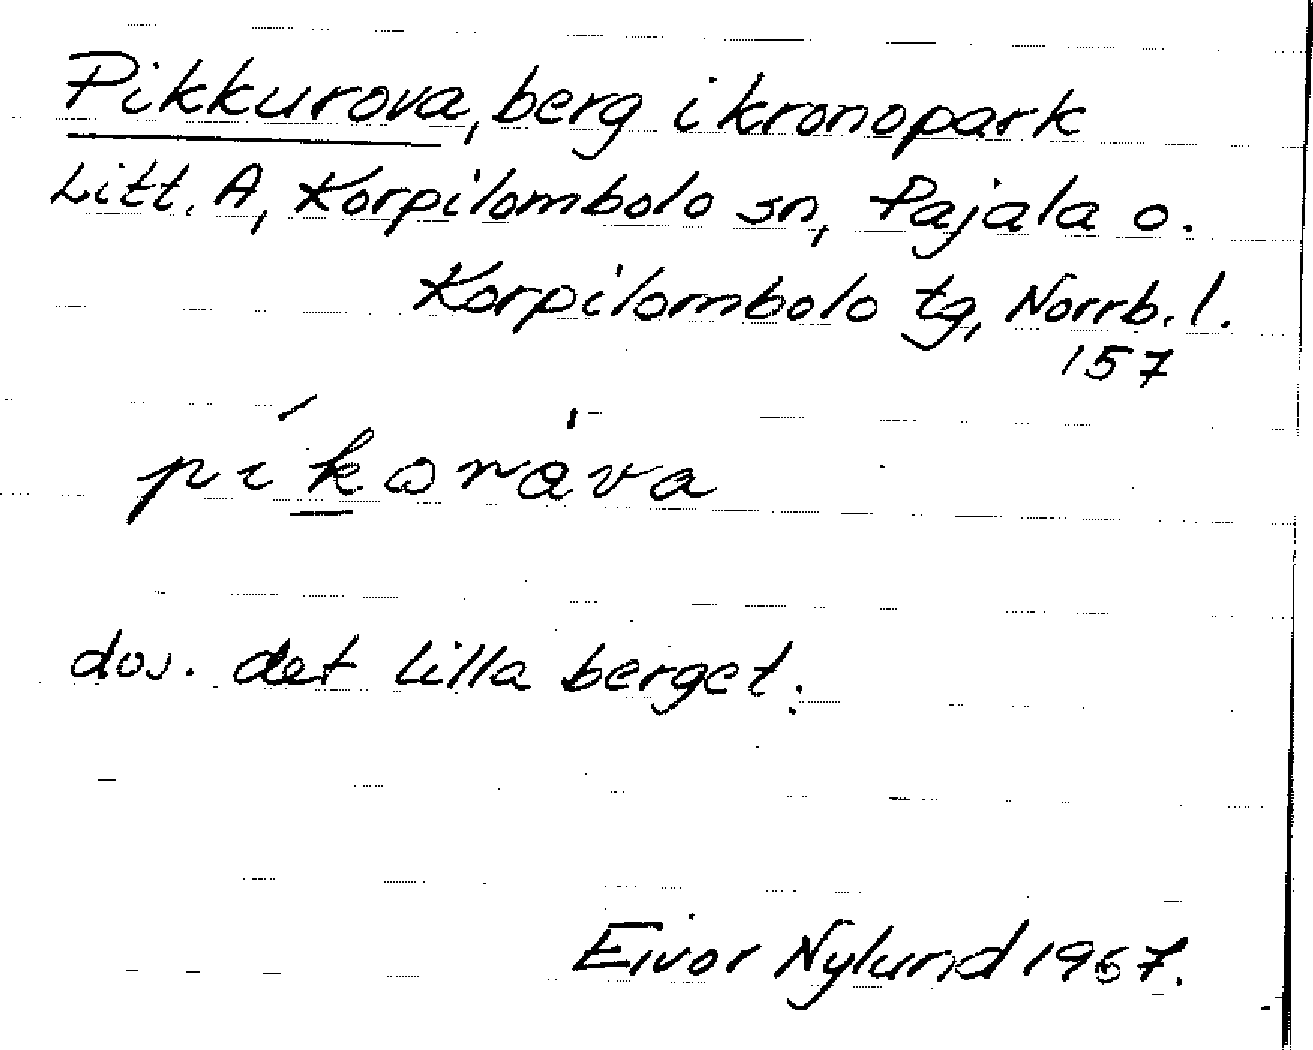 Pikkurova, berg i kronopark
Litt. A, Korpilombolo sn, Pajala o.
Korpilombolo tg, Norrb. l.
157
dvs. det lilla berget.
Eivor Nylund 1967.